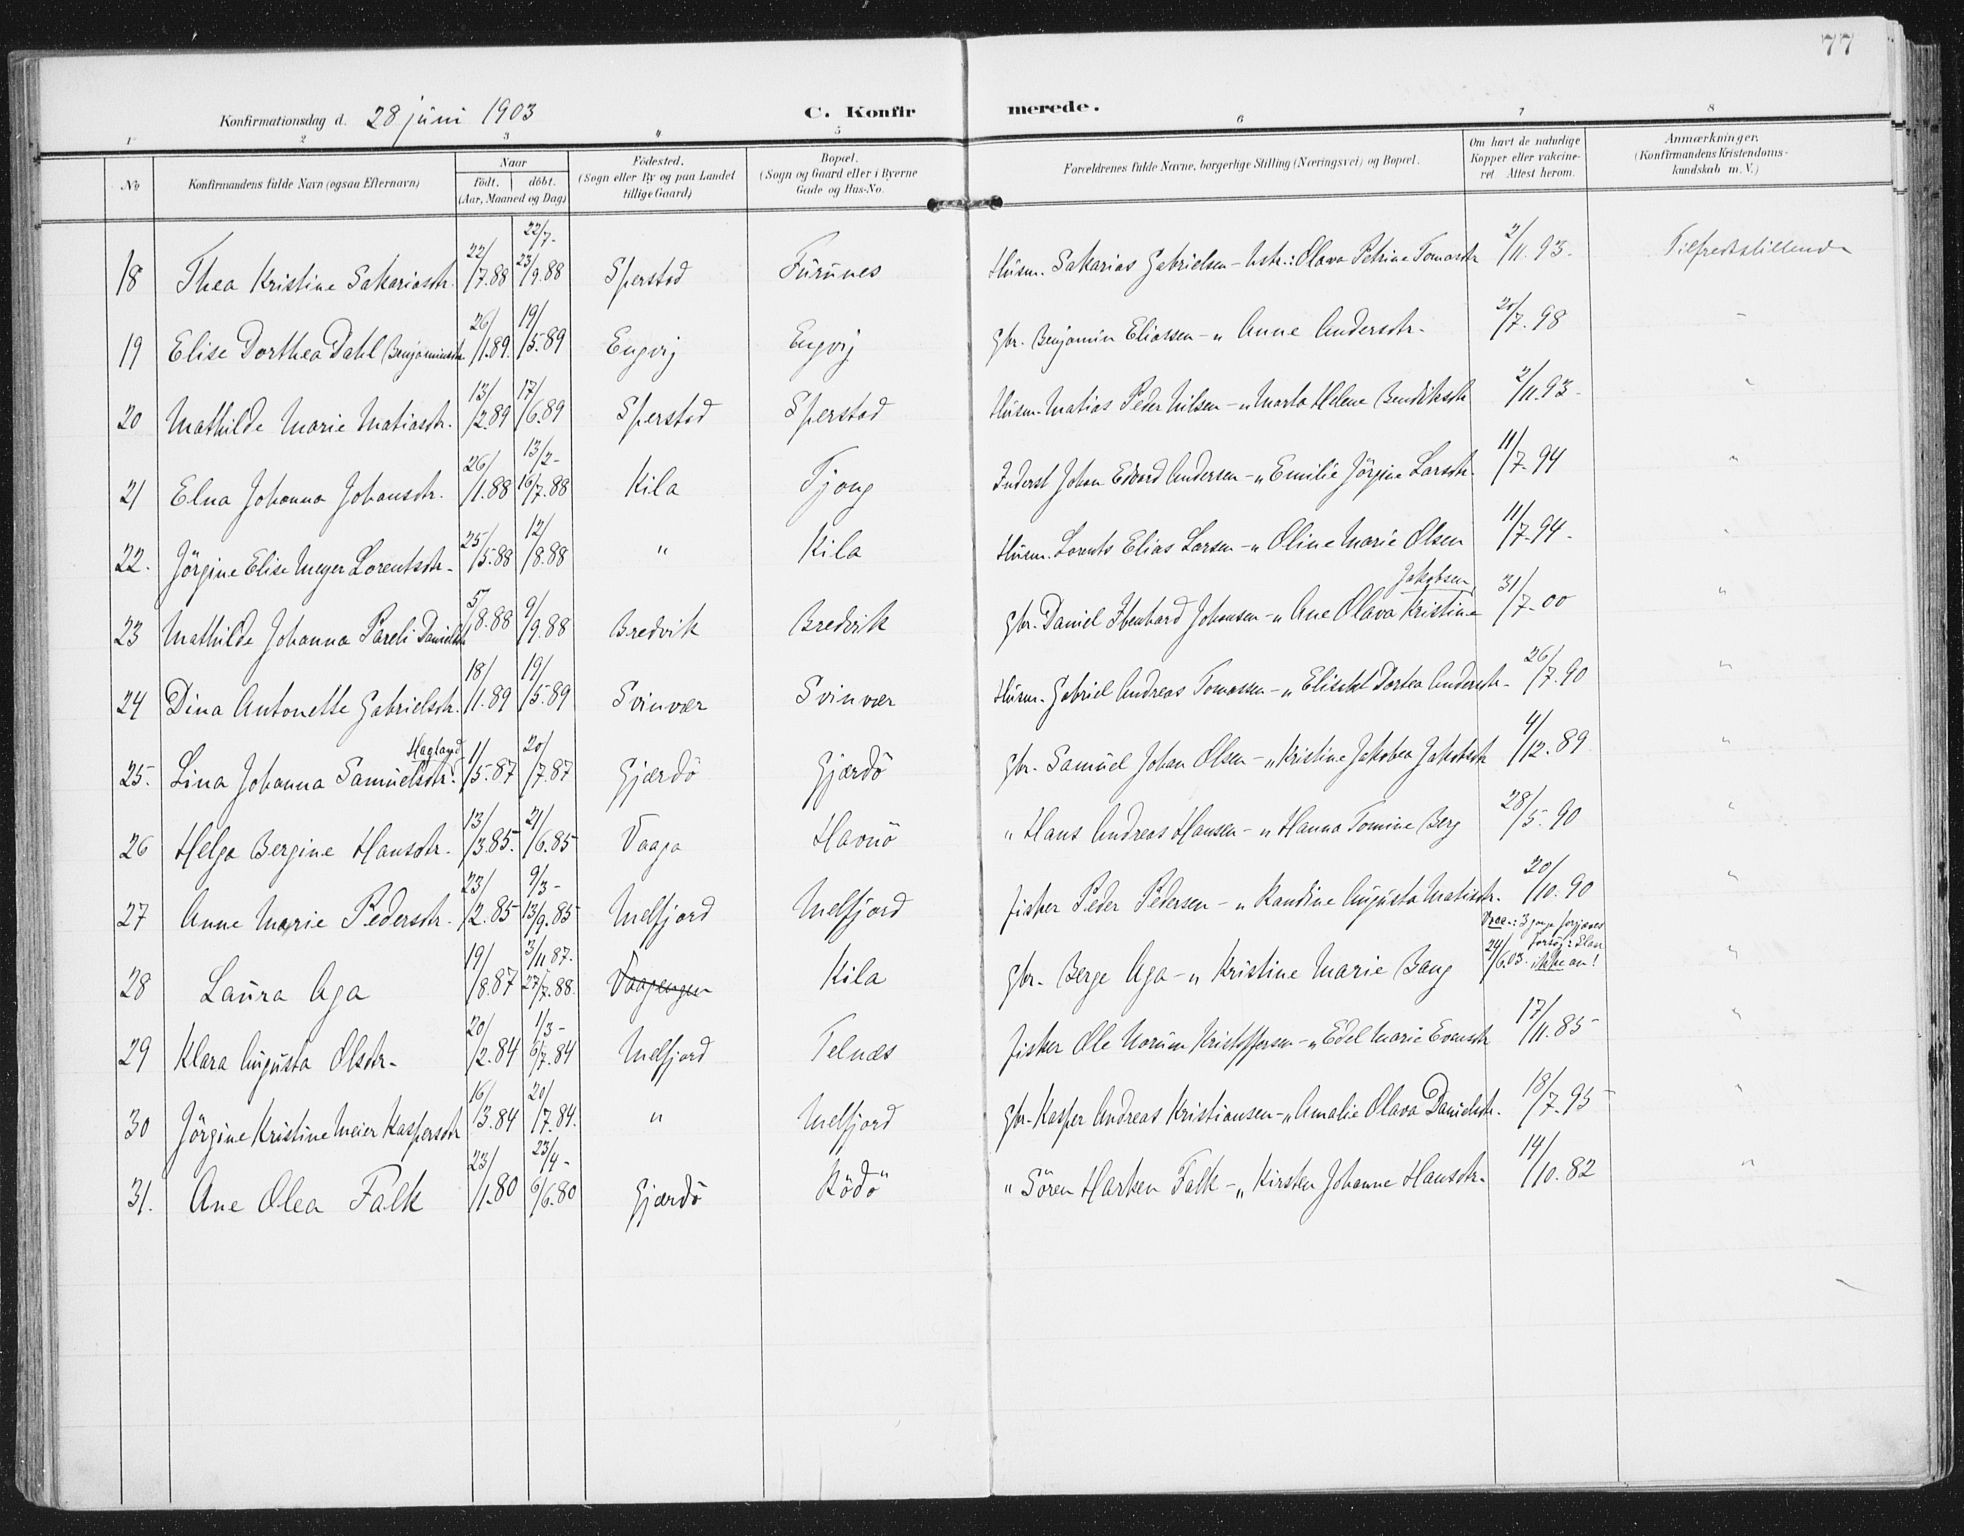 77
Konfirmationsdag d. 28 juni 1903 C. Konfirmerede.
1 2 3 4 5 6 7 8
No Konfirmandens fulde Navn (ogsaa Efternavn) Naar Födt. döbt. (Aar, Maaned og Dag) Födested. (Sogn eller By og paa Landet tillige Gaard) Bopæl. (Sogn og Gaard eller i Byerne Gade og Hus-No. Forældrenes fulde Navne, borgerlige Stilling (Næringsvei) og Bopæl. Om havt de naturlige Kopper eller vakcineret Attest herom. Anmærkninger. (Konfirmandens Kristendomskundskab m. V.)
18 Thea Kristine Sakariasdtr. 22/7.88 22/7- 23/9.88 Sperstad Furunes Husm. Sakarias Gabrielsen - hstr.: Olava Petrine Tomasdtr 2/11.93. Tilfredsstillende
19 Elise Dorthea Dahl Benjaminsdtr 26/1.89. 19/5.89 Engvij Engvij Gbr. Benjamin Eliassen - " Anne Andersdtr. 20/7.98 "
20 Mathilde Marie Matiasdtr. 13/2.89 17/6.89 Sperstad Sperstad Husm. Matias Peder Nilsen - " Marta Helene Bendiksdtr 2/11.93. "
21 Elna Johanna Johansdtr. 26/1.88 13/2- 16/7.88 Kila Tjong Inderst Johan Edvard Andersen - " Emilie Jörgine Larsdtr. 11/7.94 "
22. Jörgine Elise Meyer Lorentsdtr. 25/5.88 12/8.88 " Kila Husm. Lorents Elias Larsen - " Oline Marie Olsen 11/7.94. "
23 Mathilde Johanna Pareli Danielsdtr 5/8.88 9/9.88 Bredvik Bredvik Gbr. Daniel Ebenhard Johansen - " Ane Olava Kristine Jakobsen 31/7.00 "
24 Dina Antonette Gabrielsdtr. 18/1.89 19/5.89 Svinvær Svinvær Husm. Gabriel Andreas Tomassen - " Elisabet Dortea Andersdtr. 26/7.90 "
25. Lina Johanna Samuelsdtr. Hagland 1/5.87 20/7.87 Gjærdö Gjærdö Gbr. Samuel Johan Olsen - " Kristine Jakobea Jakobsdtr 4/12.89 "
26 Helga Bergine Hansdtr. 13/3.85. 21/6.85 Vaaga Havnö " Hans Andreas Hansen - " Hanna Tomine Berg 28/5.90 "
27 Anne Marie Pedersdtr. 23/2.85 9/3- 13/9.85 Melfjord Melfjord Fisker Peder Pedersen - " Randine Augusta Matisdtr. 20/10.90 "
28 Laura Aga 19/8.87 3/11 87. 27/7.88. Vaagengen Kila Gbr. Berge Aga - " Kristine Marie Bang 24/6.03. 3 gange forgjæves forsög: Slaar ikke an! "
29 Klara Augusta Olsdtr. 20/2.84 1/3- 6/7.84 Melfjord Telnæs Fisker Ole Norum Kristoffersen - " Edel Marie Evensdtr 17/11.85 "
30 Jörgine Kristine Meier Kaspersdtr 16/3.84 20/7.84. " Melfjord Gbr. Kasper Andreas Kristiansen - " Amalie Olava Danielsdtr. 18/7.95 "
31. Ane Olea Falk 23/1.80 23/4- 6/6.80 Gjærdö Rödö " Sören Harken Falk - " Kirsten Johanne Hansdtr. 14/10.82 "